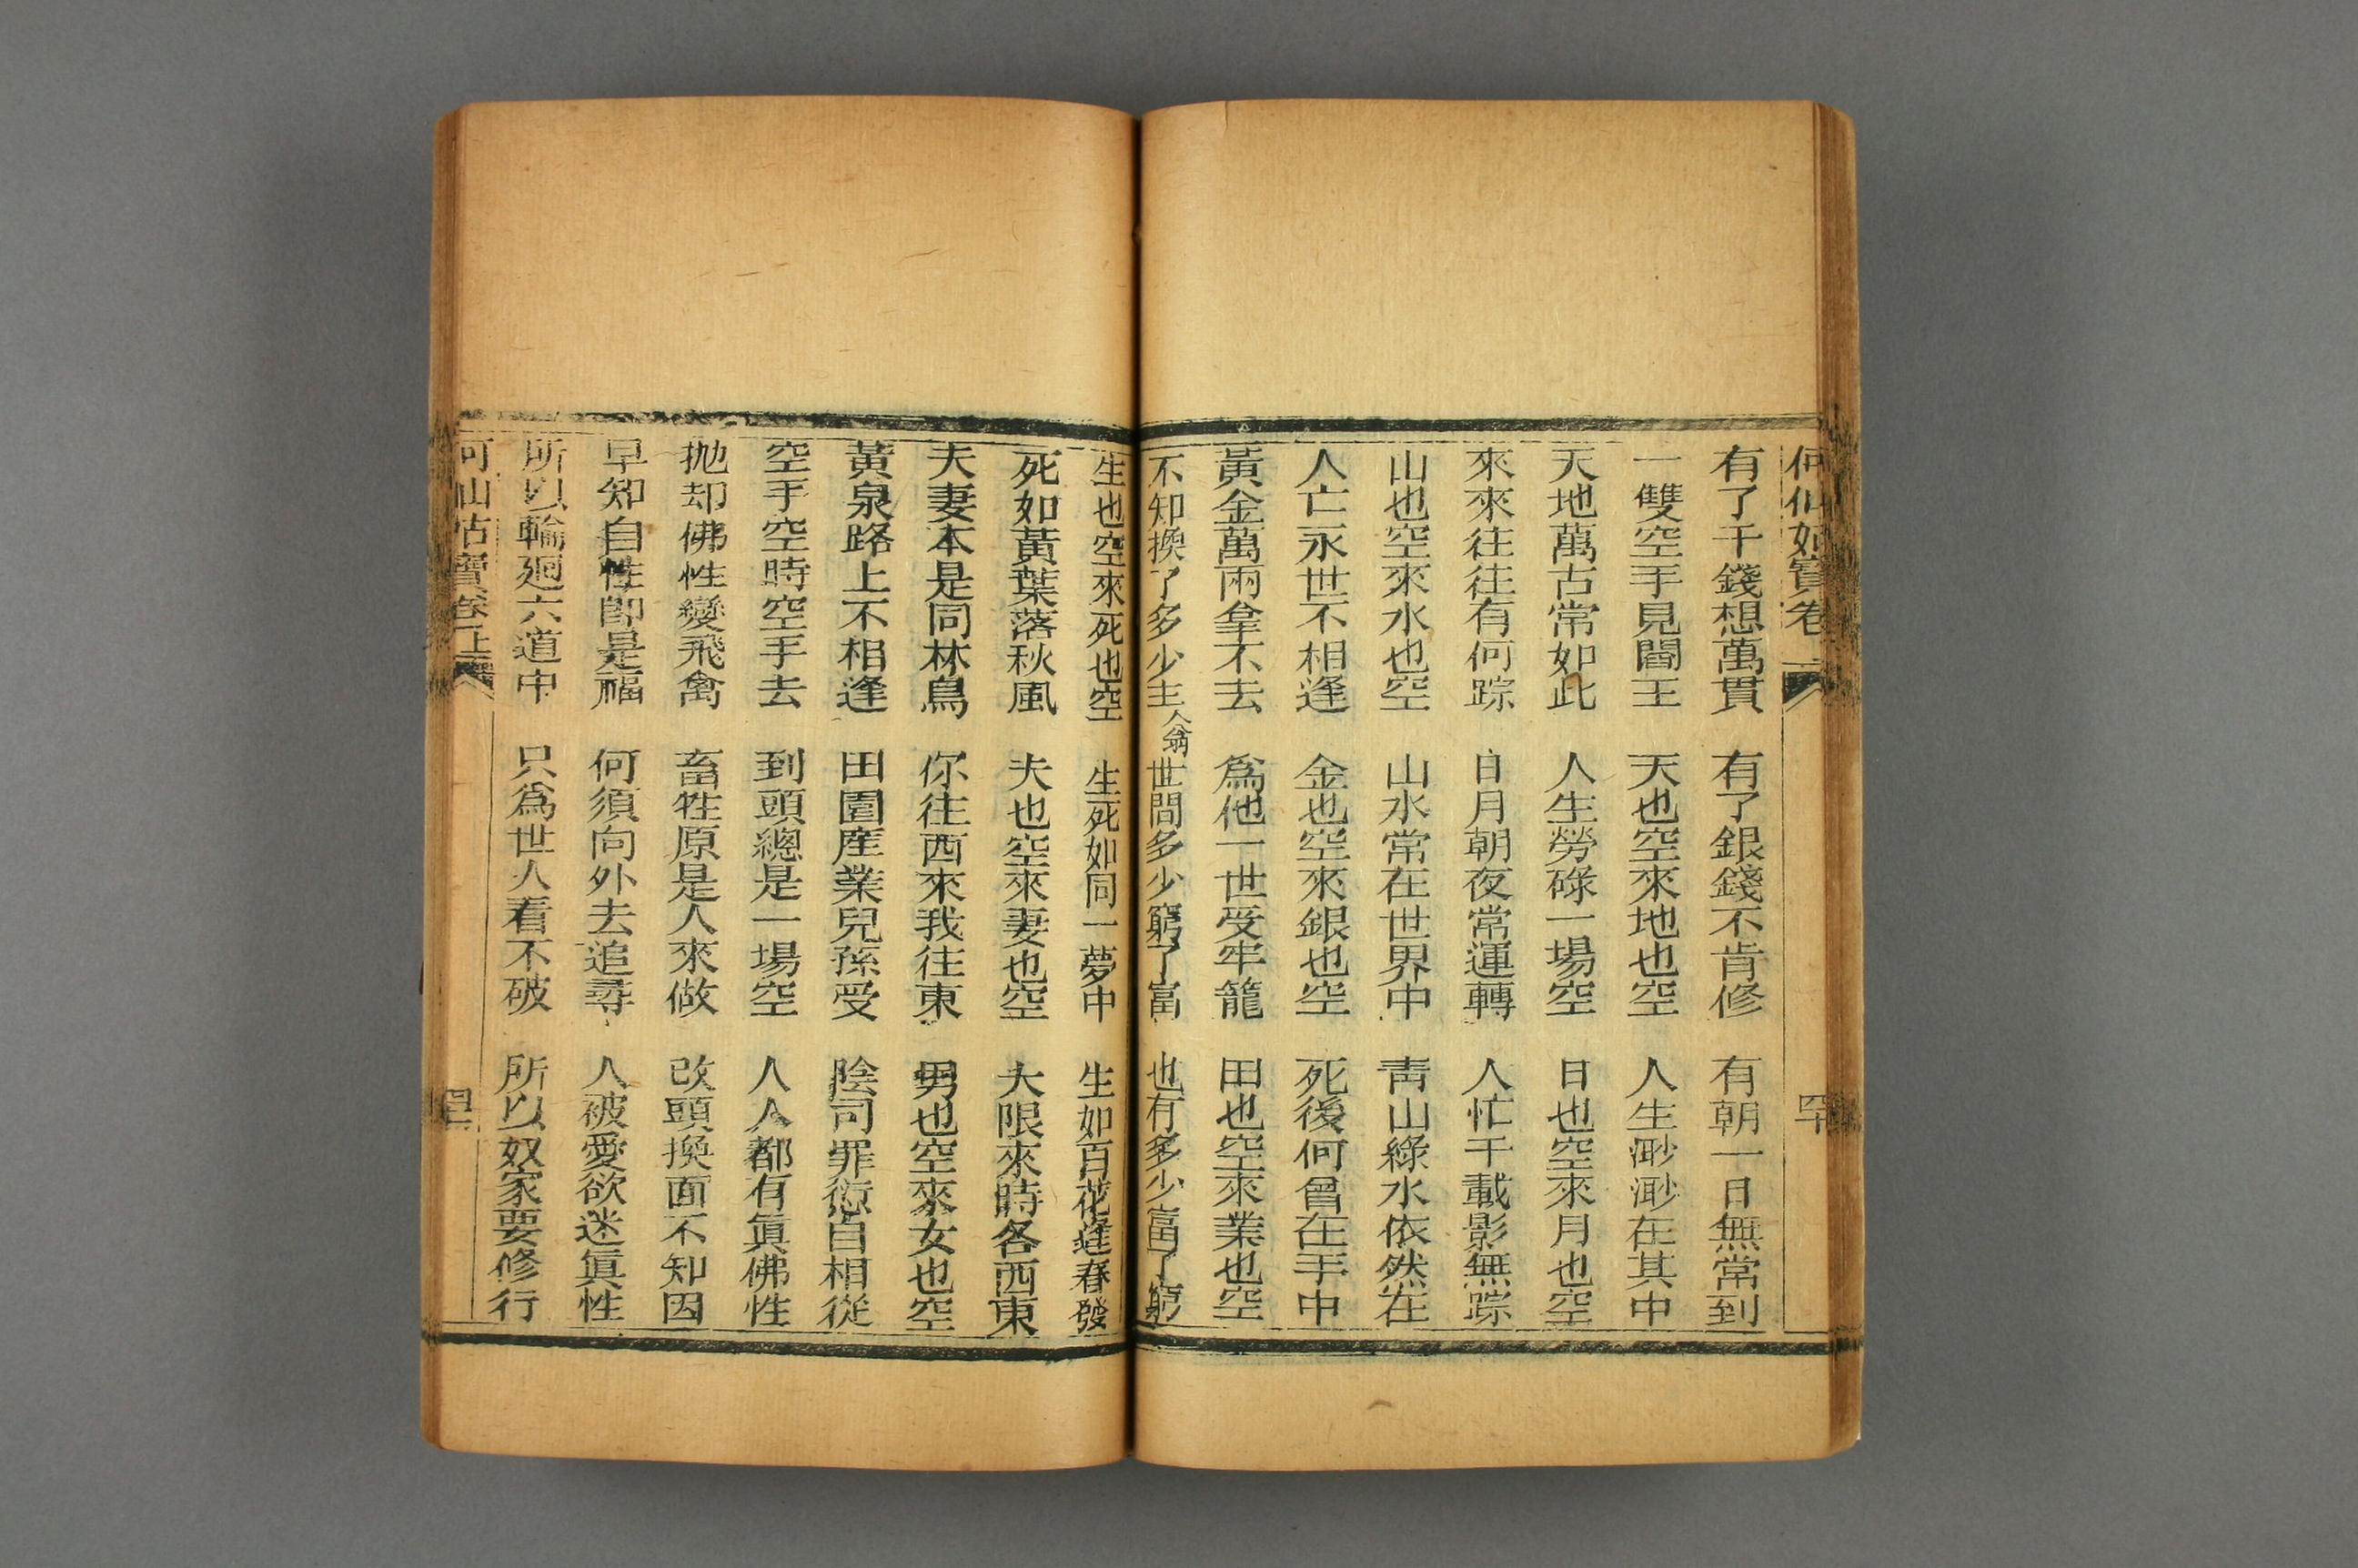 何仙姑寶卷
有了千錢想萬貫 有了銀錢不肯修 有朝一日無常到
一雙空手見閻王 天也空來地也空 人生渺渺在其中
天地萬古常如此 人生勞碌一場空 日也空來月也空
來來往往有何踪 日月朝夜常運轉 人忙千載影無踪
山也空來水也空 山水常在世界中 靑山綠水依然在
人亡永世不相逢 金也空來銀也空 死後何曾在手中
黃金萬兩拿不去 爲他一世受牢籠 田也空來業也空
不知換了多少主人翁 世間多少窮了富 也有多少富了窮
生也空來死也空 生死如同一夢中 生如百花逢春發
死如黃葉落秋風 夫也空來妻也空 大限來時各西東
夫妻本是同林鳥 你往西來我往東 男也空來女也空
黃泉路上不相逢 田園產業兒孫受 陰司罪愆自相從
空手空時空手去 到頭總是一場空 人人都有眞佛性
拋却佛性變飛禽 畜牲原是人來做 改頭換面不知因
早知自性卽是福 何須向外去追尋 人破愛欲迷眞性
所以輪廻六道中 只爲世人看不破 所以奴家要修行
何仙姑寶卷 上